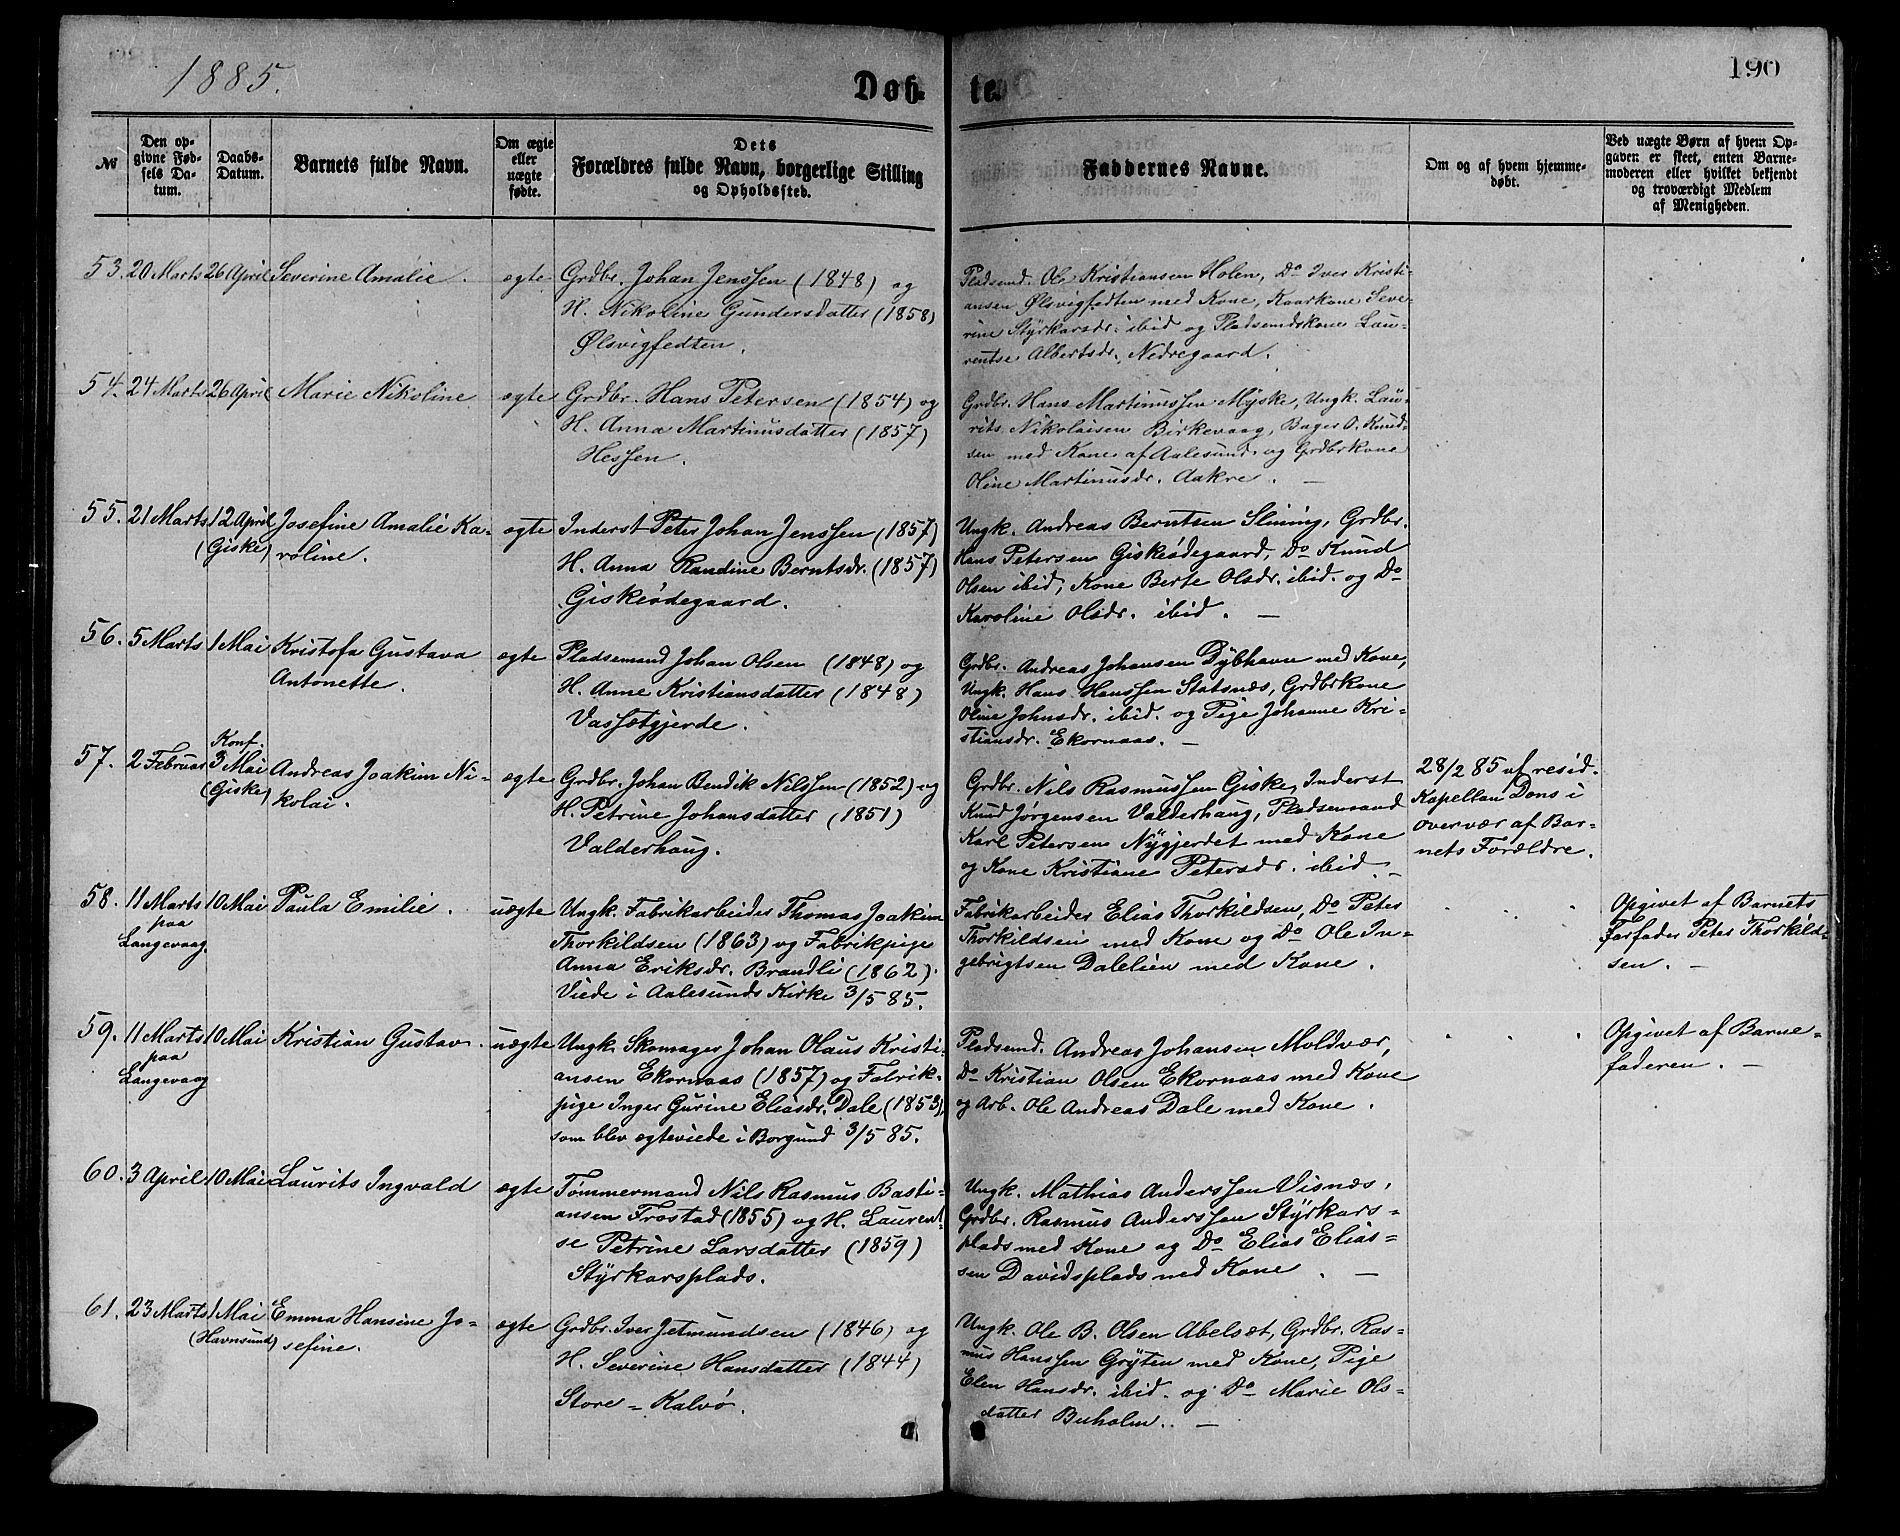 1885.
Døb-
te.
190
№
Den op-
givne Fød-
sels Da-
tum.
Daabs-
Datum.
Barnets fulde Navn.
Om ægte
eller
uægte
fødte.
Dets
Forældres fulde Navn, borgerlige Stilling
og Opholdssted.
Faddernes Navne.
Om og af hvem hjemme-
døbt.
Ved uægte Børn af hvem Op-
gaven er skeet, enten Barne-
moderen eller hvilket bekjendt
og troværdigt Medlem
af Menigheden.
53. 20 Marts 26 April Severine Amalie. ægte Grdbr. Johan Jenssen (1848) og
H. Nikoline Gundersdatter (1858)
Ølsvigfedten.
Pladsmd. Ole Kristiansen Holen, Do Iver Kristi-
ansen Ølsvigfedten med Kone, Kaarkone Seve-
rine Styrkarsdr. ibid og Pladsemdskone Lau-
rentse Albertsdr. Nedregaard.
54. 24 Marts 26 April Marie Nikoline ægte Grdbr. Hans Petersen (1854) og
H. Anna Martinusdatter (1857)
Hessen.
Grdbr. Hans Martinussen Myske, Ungk. Lau-
rits Nikolaisen Birkevaag, Bager O. Knud-
sen med Kone af Aalesund og Grdbrkone
Oline Martinusdr. Aakre. —
55. 21 Marts 12 April Josefine Amalie Ka- ægte Inderst Peter Johan Jenssen (1857)
(Giske) roline. H. Anna Randine Berntsdr. (1857)
Giskeødegaard.
Ungk. Andreas Berntsen Slining, Grdbr.
Hans Petersen Giskeødegaard, Do Knud
Olsen ibid, Kone Berte Olsdr. ibid. og Do
Karoline Olsdr. ibid. —
56. 5 Marts 1 Mai Kristofa Gustava ægte Pladsemand Johan Olsen (1848) og
Antonette. H. Anne Kristiansdatter (1848)
Vassætgjerde.
Grdbr. Andreas Johansen Dybhavn med Kone,
Ungk. Hans Hanssen Statsnæs, Grdbrkone
Oline Johnsdr. ibid. og Pige Johanne Kri-
stiansdr. Ekornaas. —
Konf.
57. 2 Februar 3 Mai Andreas Joakim Ni- ægte Grdbr. Johan Bendik Nilssen (1852) og
(Giske) kolai. H. Petrine Johansdatter (1851)
Valderhaug.
Grdbr. Nils Rasmussen Giske, Inderst
Knud Jørgensen Valderhaug, Pladsemand
Karl Petersen Nygjerdet med Kone
og Kone Kristiane Petersdr. ibid. —
28/2 85 af resid.
Kapellan Dons i
Overvær af Bar-
nets Forældre.
58. 11 Marts 10 Mai Paula Emilie. uægte Ungk. Fabrikarbeider Thomas Joakim
paa Thorkildsen (1863) og Fabrikpige
Langevaag Anna Eriksdr. Brandli (1862).
Viede i Aalesunds Kirke 3/5 85.
Fabrikarbeider Elias Thorkildsen, Do Peter
Thorkildsen med Kone og Do Ole In-
gebrigtsen Dalelien med Kone.
Opgivet af Barnets
Farfader Peter Thorkild-
sen. —
59. 11 Marts 10 Mai Kristian Gustav. uægte Ungk. Skomager Johan Olaus Kristi-
paa ansen Ekornaas (1857) og Fabrik-
Langevaag pige Inger Gurine Eliasdr. Dale (1853),
som blev ægteviede i Borgund 3/5 85.
Pladsmd. Andreas Johansen Moldvær,
Do Kristian Olsen Ekornaas med Kone
og Arb. Ole Andreas Dale med Kone.
Opgivet af Barne-
faderen. —
60. 3 April 10 Mai Laurits Ingvald ægte Tømmermand Nils Rasmus Basti-
ansen Frostad (1855) og H. Laurent-
se Petrine Larsdatter (1859)
Styrkarsplads.
Ungk. Mathias Anderssen Visnæs,
Grdbr. Rasmus Anderssen Styrkars-
plads med Kone og Do Elias Elias-
sen Davidsplads med Kone. —
61. 23 Marts 1 Mai Emma Hansine Jo- ægte Grdbr. Iver Jetmundsen (1846) og
(Havnsund) sefine. H. Severine Hansdatter (1844)
Store-Kalvø.
Ungk. Ole B. Olsen Abelsæt, Grdbr. Ras-
mus Hanssen Gryten med Kone, Pige
Elen Hansdr. ibid. og Do Marie Ols-
datter Buholm. —